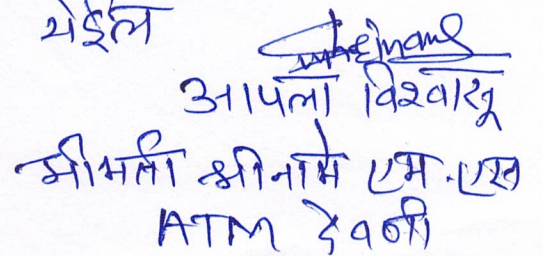 येईल
आपला विश्वासू
श्रीमती श्रीनामे एम.एस
ATM देवणी